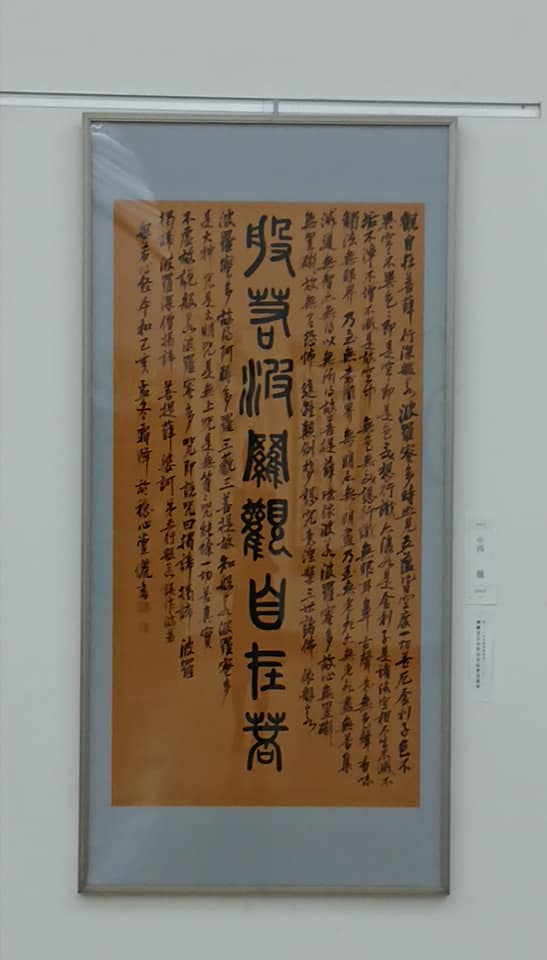 觀自在菩薩行深般若波羅蜜多時照見五蘊皆空度一切苦厄舍利子色不
異空々不異色々即是空々即是色受想行識亦復如是舍利子是諸法空相不生不滅不
垢不淨不增不減是故空中無色無受想行識無眼耳鼻舌身意無色聲香味
觸法無眼界乃至無意識界無無明亦無無明盡乃至無老死亦無老死盡無苦集
滅道無智亦無得以無所得故菩提薩埵依般若波羅蜜多故心無罣礙
無罣礙故無有恐怖遠離顛倒夢想究竟涅槃三世諸佛依般若
般若波羅觀自在菩
波羅蜜多故得阿耨多羅三藐三菩提故知般若波羅蜜多
是大神咒是大明咒是無上咒是無等々咒能除一切苦真實
不虛故說般若波羅蜜多咒即說咒曰揭諦揭諦波羅
揭諦波羅僧揭諦菩提薩婆訶
般若心經令和乙亥孟冬霜降於心堂書
小西